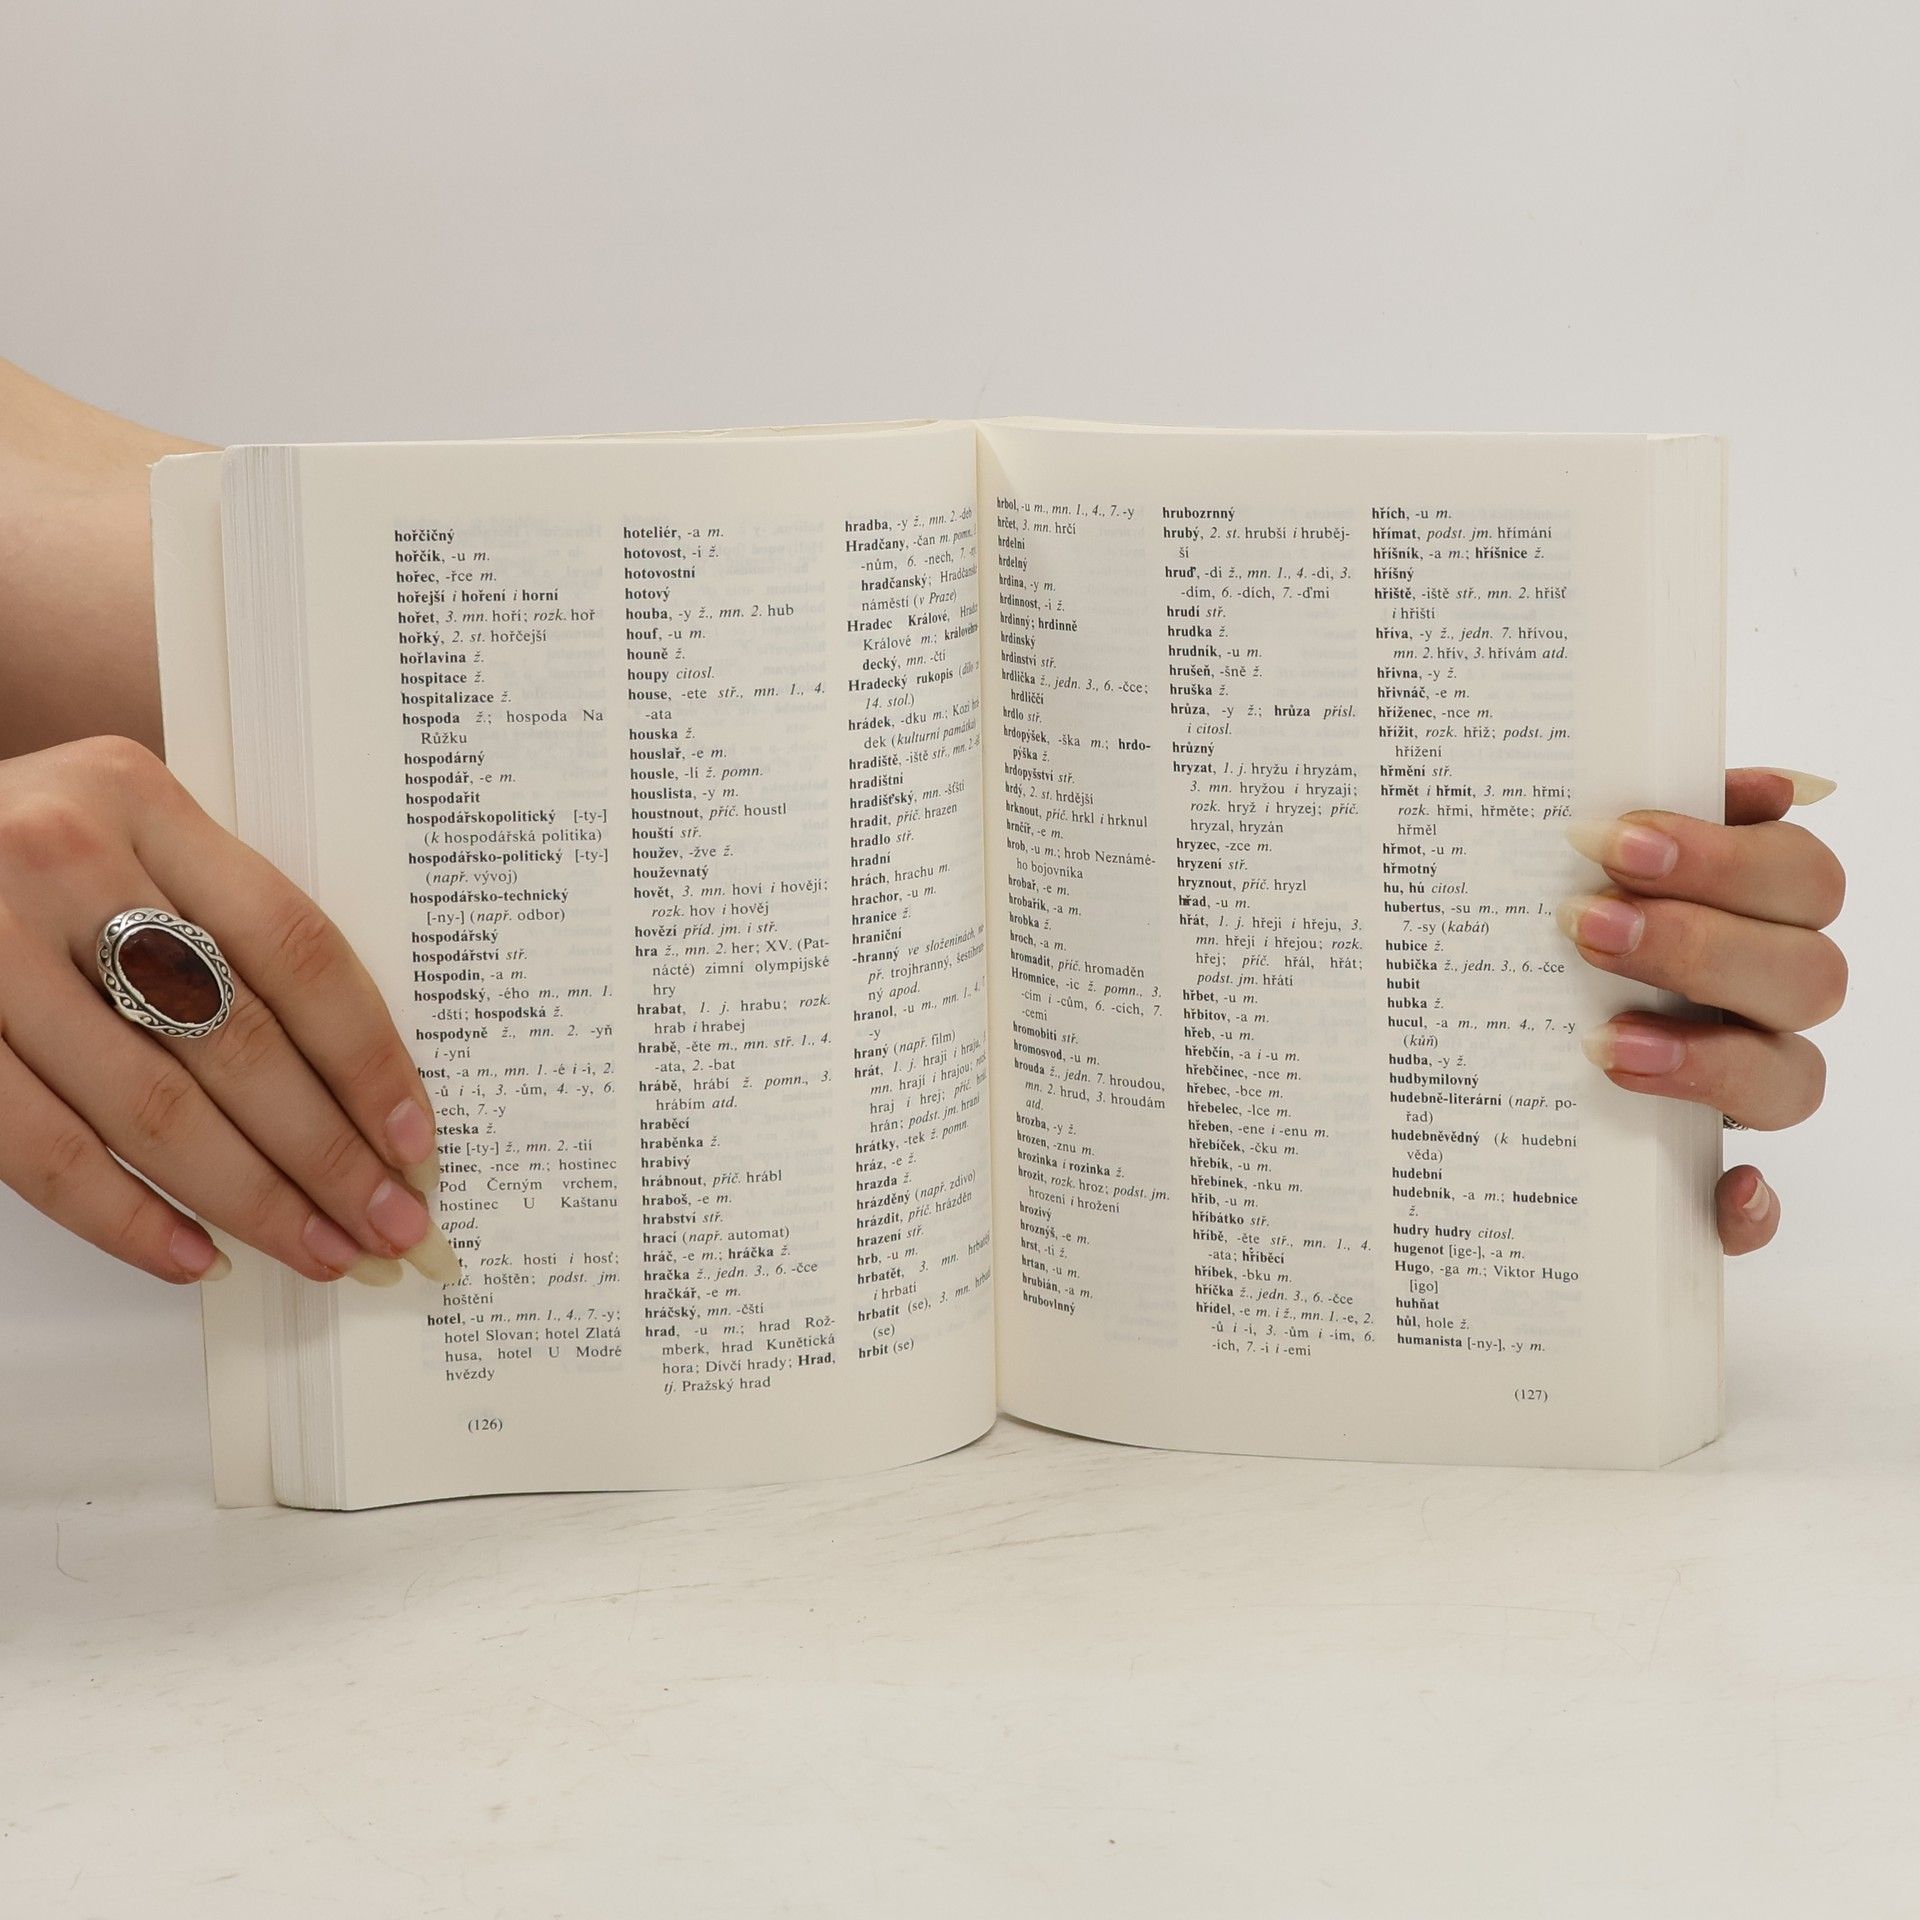 hořčičný
hořčík, -u m.
hořec, -řce m.
hořejší i hoření i horní
hořet, 3. mn. hoří; rozk. hoř
hořký, 2. st. hořčejší
hořlavina ž.
hospitace ž.
hospitalizace ž.
hospoda ž.; hospoda Na
Růžku
hospodárný
hospodář, -e m.
hospodařit
hospodářskopolitický [-ty-]
(k hospodářská politika)
hospodářsko-politický [-ty-]
(např. vývoj)
hospodářsko-technický
[-ny-] (např. odbor)
hospodářský
hospodářství stř.
Hospodin, -a m.
hospodský, -ého m., mn. 1.
-dští; hospodská ž.
hospodyně ž., mn. 2. -yň
i -yní
host, -a m., mn. 1. -é i -i, 2.
-ů i -í, 3. -ům, 4. -y, 6.
-ech, 7. -y
steska ž.
stie [-ty-] ž., mn. 2. -tií
stinec, -nce m.; hostinec
Pod Černým vrchem,
hostinec U Kaštanu
apod.
tinný
t, rozk. hosti i hosť;
příč. hoštěn; podst. jm.
hoštění
hotel, -u m., mn. 1., 4., 7. -y;
hotel Slovan; hotel Zlatá
husa, hotel U Modré
hvězdy
(126)
hoteliér, -a m.
hotovost, -i ž.
hotovostní
hotový
houba, -y ž., mn. 2. hub
houf, -u m.
houně ž.
houpy citosl.
house, -ete stř., mn. 1., 4.
-ata
houska ž.
houslař, -e m.
housle, -lí ž. pomn.
houslista, -y m.
houstnout, příč. houstl
houští stř.
houžev, -žve ž.
houževnatý
hovět, 3. mn. hoví i hovějí;
rozk. hov i hověj
hovězí příd. jm. i stř.
hra ž., mn. 2. her; XV. (Pat-
nácté) zimní olympijské
hry
hrabat, 1. j. hrabu; rozk.
hrab i hrabej
hrabě, -ěte m., mn. stř. 1., 4.
-ata, 2. -bat
hrábě, hrábí ž. pomn., 3.
hrábím atd.
hraběcí
hraběnka ž.
hrabivý
hrábnout, příč. hrábl
hraboš, -e m.
hrabství stř.
hrací (např. automat)
hráč, -e m.; hráčka ž.
hračka ž., jedn. 3., 6. -čce
hračkář, -e m.
hráčský, mn. -čští
hrad, -u m.; hrad Rož-
mberk, hrad Kunětická
hora; Dívčí hrady; Hrad,
tj. Pražský hrad
hradba, -y ž., mn. 2. -deb
Hradčany, -čan m. pomn.,
-nům, 6. -nech, 7. -ny
hradčanský; Hradčanské
náměstí (v Praze)
Hradec Králové, Hradce
Králové m.; královéhra-
decký, mn. -čtí
Hradecký rukopis
14. stol.)
hrádek, -dku m.; Kozí hrá-
dek (kulturní památka)
hradiště, -iště stř., mn. 2. -išť
hradištní
hradišťský, mn. -šťští
hradit, příč. hrazen
hradlo stř.
hradní
hrách, hrachu m.
hrachor, -u m.
hranice ž.
hraniční
-hranný ve složeninách,
př. trojhranný, šestihran-
ný apod.
hranol, -u m., mn. 1., 4.,
-y
hraný (např. film)
hrát, 1. j. hraji i hraju,
mn. hrají i hrajou; rozk.
hraj i hrej; příč. hrál,
hrán; podst. jm. hraní
hrátky, -tek ž. pomn.
hráz, -e ž.
hrazda ž.
hrázděný (např. zdivo)
hrázdit, příč. hrázděn
hrazení stř.
hrb, -u m.
hrbatět, 3. mn. hrbatějí
i hrbatí
hrbatit (se), 3. mn. hrbatí
(se)
hrbit (se)
hrbol, -u m., mn. 1., 4., 7. -y
hrčet, 3. mn. hrčí
hrdelní
hrdelný
hrdina, -y m.
hrdinnost, -i ž.
hrdinný; hrdinně
hrdinský
hrdinství stř.
hrdlička ž., jedn. 3., 6. -čce;
hrdliččí
hrdlo stř.
hrdopýšek, -ška m.; hrdo-
pýška ž.
hrdopyšství stř.
hrdý, 2. st. hrdější
hrknout, příč. hrkl i hrknul
hrnčíř, -e m.
hrob, -u m.; hrob Neznámé-
ho bojovníka
hrobař, -e m.
hrobařík, -a m.
hrobka ž.
hroch, -a m.
hromadit, příč. hromaděn
Hromnice, -ic ž. pomn., 3.
-cím i -cům, 6. -cích, 7.
-cemi
hromobití stř.
hromosvod, -u m.
hrouda ž., jedn. 7. hroudou,
mn. 2. hrud, 3. hroudám
atd.
hrozba, -y ž.
hrozen, -znu m.
hrozinka i rozinka ž.
hrozit, rozk. hroz; podst. jm.
hrození i hrožení
hrozivý
hroznýš, -e m.
hrst, -ti ž.
hrtan, -u m.
hrubián, -a m.
hrubovlnný
hrubozrnný
hrubý, 2. st. hrubší i hruběj-
ší
hruď, -di ž., mn. 1., 4. -di, 3.
-dím, 6. -dích, 7. -ďmi
hrudí stř.
hrudka ž.
hrudník, -u m.
hrušeň, -šně ž.
hruška ž.
hrůza, -y ž.; hrůza přísl.
i citosl.
hrůzný
hryzat, 1. j. hryžu i hryzám,
3. mn. hryžou i hryzají;
rozk. hryž i hryzej; příč.
hryzal, hryzán
hryzec, -zce m.
hryzení stř.
hryznout, příč. hryzl
hřad, -u m.
hřát, 1. j. hřeji i hřeju, 3.
mn. hřejí i hřejou; rozk.
hřej; příč. hřál, hřát;
podst. jm. hřátí
hřbet, -u m.
hřbitov, -a m.
hřeb, -u m.
hřebčín, -a i -u m.
hřebčinec, -nce m.
hřebec, -bce m.
hřebelec, -lce m.
hřeben, -ene i -enu m.
hřebíček, -čku m.
hřebík, -u m.
hřebínek, -nku m.
hřib, -u m.
hříbátko stř.
hříbě, -ěte stř., mn. 1., 4.
-ata; hříběcí
hříbek, -bku m.
hříčka ž., jedn. 3., 6. -čce
hřídel, -e m. i ž., mn. 1. -e, 2.
-ů i -í, 3. -ům i -ím, 6.
-ích, 7. -i i -emi
hřích, -u m.
hřímat, podst. jm. hřímání
hříšník, -a m.; hříšnice ž.
hříšný
hřiště, -iště stř., mn. 2. hřišť
i hřiští
hříva, -y ž., jedn. 7. hřívou,
mn. 2. hřív, 3. hřívám atd.
hřivna, -y ž.
hřivnáč, -e m.
hříženec, -nce m.
hřížit, rozk. hřiž; podst. jm.
hřížení
hřmění stř.
hřmět i hřmít, 3. mn. hřmí;
rozk. hřmi, hřměte; příč.
hřměl
hřmot, -u m.
hřmotný
hu, hú citosl.
hubertus, -su m., mn. 1.,
7. -sy (kabát)
hubice ž.
hubička ž., jedn. 3., 6. -čce
hubit
hubka ž.
hucul, -a m., mn. 4., 7. -y
(kůň)
hudba, -y ž.
hudbymilovný
hudebně-literární (např. po-
řad)
hudebněvědný (k hudební
věda)
hudební
hudebník, -a m.; hudebnice
ž.
hudry hudry citosl.
hugenot [ige-], -a m.
Hugo, -ga m.; Viktor Hugo
[igo]
huhňat
hůl, hole ž.
humanista [-ny-], -y m.
(127)